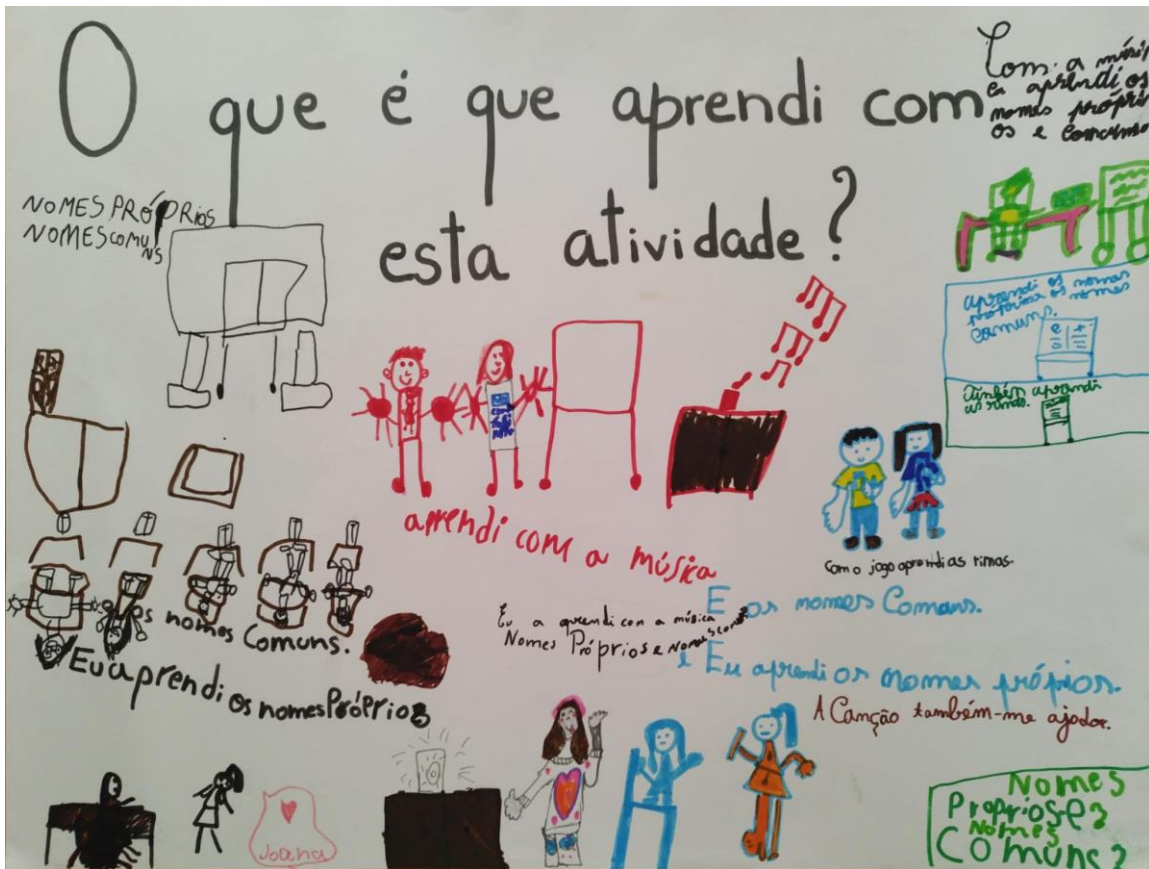 O que é que aprendi com
esta atividade?
Com a músi
eu aprendi os
nomes própri
os e comuns
NOMES PRÓPRIOS
NOMES COMU
NS
aprendi os nomes
próprios os nomes
comuns.
Também aprendi
as rimas.
aprendi com a música
Com o jogo aprendi as rimas.
os nomes Comuns.
Eu aprendi os nomes Próprios
Eu a aprendi con a música
Nomes Próprios e Nomes comuns
E os nomes Comuns.
Eu aprendi os nomes própios.
A Canção também-me ajodou.
Joana
Nomes
Proprios e
Nomes
Comuns